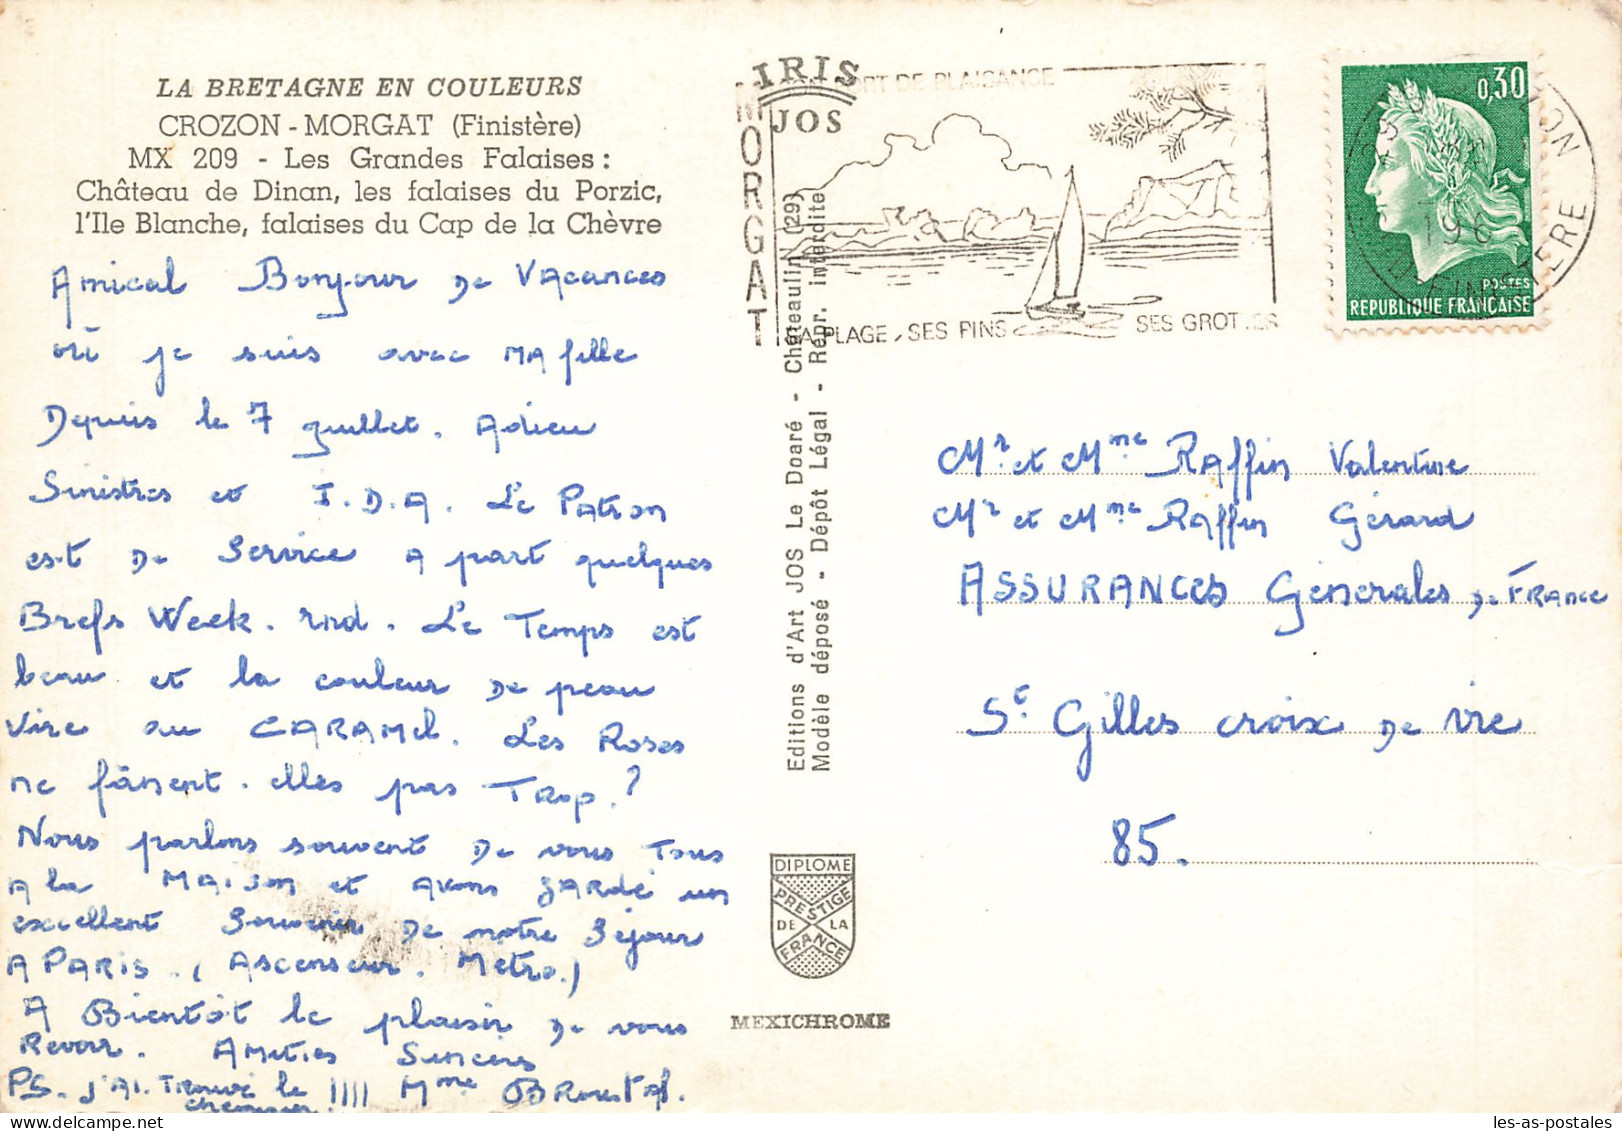 LA BRETAGNE EN COULEURS
CROZON - MORGAT (Finistère)
MX 209 - Les Grandes Falaises :
Château de Dinan, les falaises du Porzic,
l'Ile Blanche, falaises du Cap de la Chèvre
Amical Bonjour de Vacances
où je suis avec MA fille
Depuis le 7 juillet. Adieu
Sinistres et I.D.A. Le Patron
est de Service A part quelques
Brefs Week-end. Le Temps est
beau et la couleur de peau
vire au CARAMEL. Les Roses
ne fânent-elles pas Trop.?
Nous parlons souvent de vous Tous
A la MAison et Avons gardé un
excellent Souvenir de notre Séjour
A PARIS. (Ascenseur. Metro.)
A Bientôt le plaisir de vous
Revoir. Amitiés Sincères
PS. J'AI Trouvé le !!!! Mme
chemisier.
IRIS
JOS
PORT DE PLAISANCE
MORGAT
LA PLAGE, SES PINS
SES GROTTES
0,30
POSTES
REPUBLIQUE FRANÇAISE
CROZON
196
FINISTERE
Editions d'Art JOS Le Doaré - Châteaulin (29)
Modèle déposé - Dépôt Légal - Repr. interdite
Mr et Mme Raffin Valentine
Mr et Mme Raffin Gérard
ASSURANCES Générales de FRANCE
St Gilles croix de vie
85.
DIPLOME
PRESTIGE
DE LA
FRANCE
MEXICHROME
les-as-postales